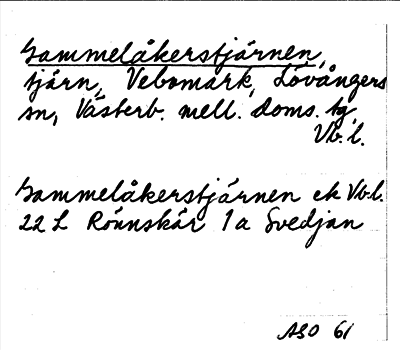 Gammelåkerstjärnen,
tjärn, Vebomark, Lövångers
sn, Västerb. mell. doms. tg,
Vb.l.
Gammelåkerstjärnen ek Vb.l.
22 L Rönnskär 1 a Svedjan
ASO 61